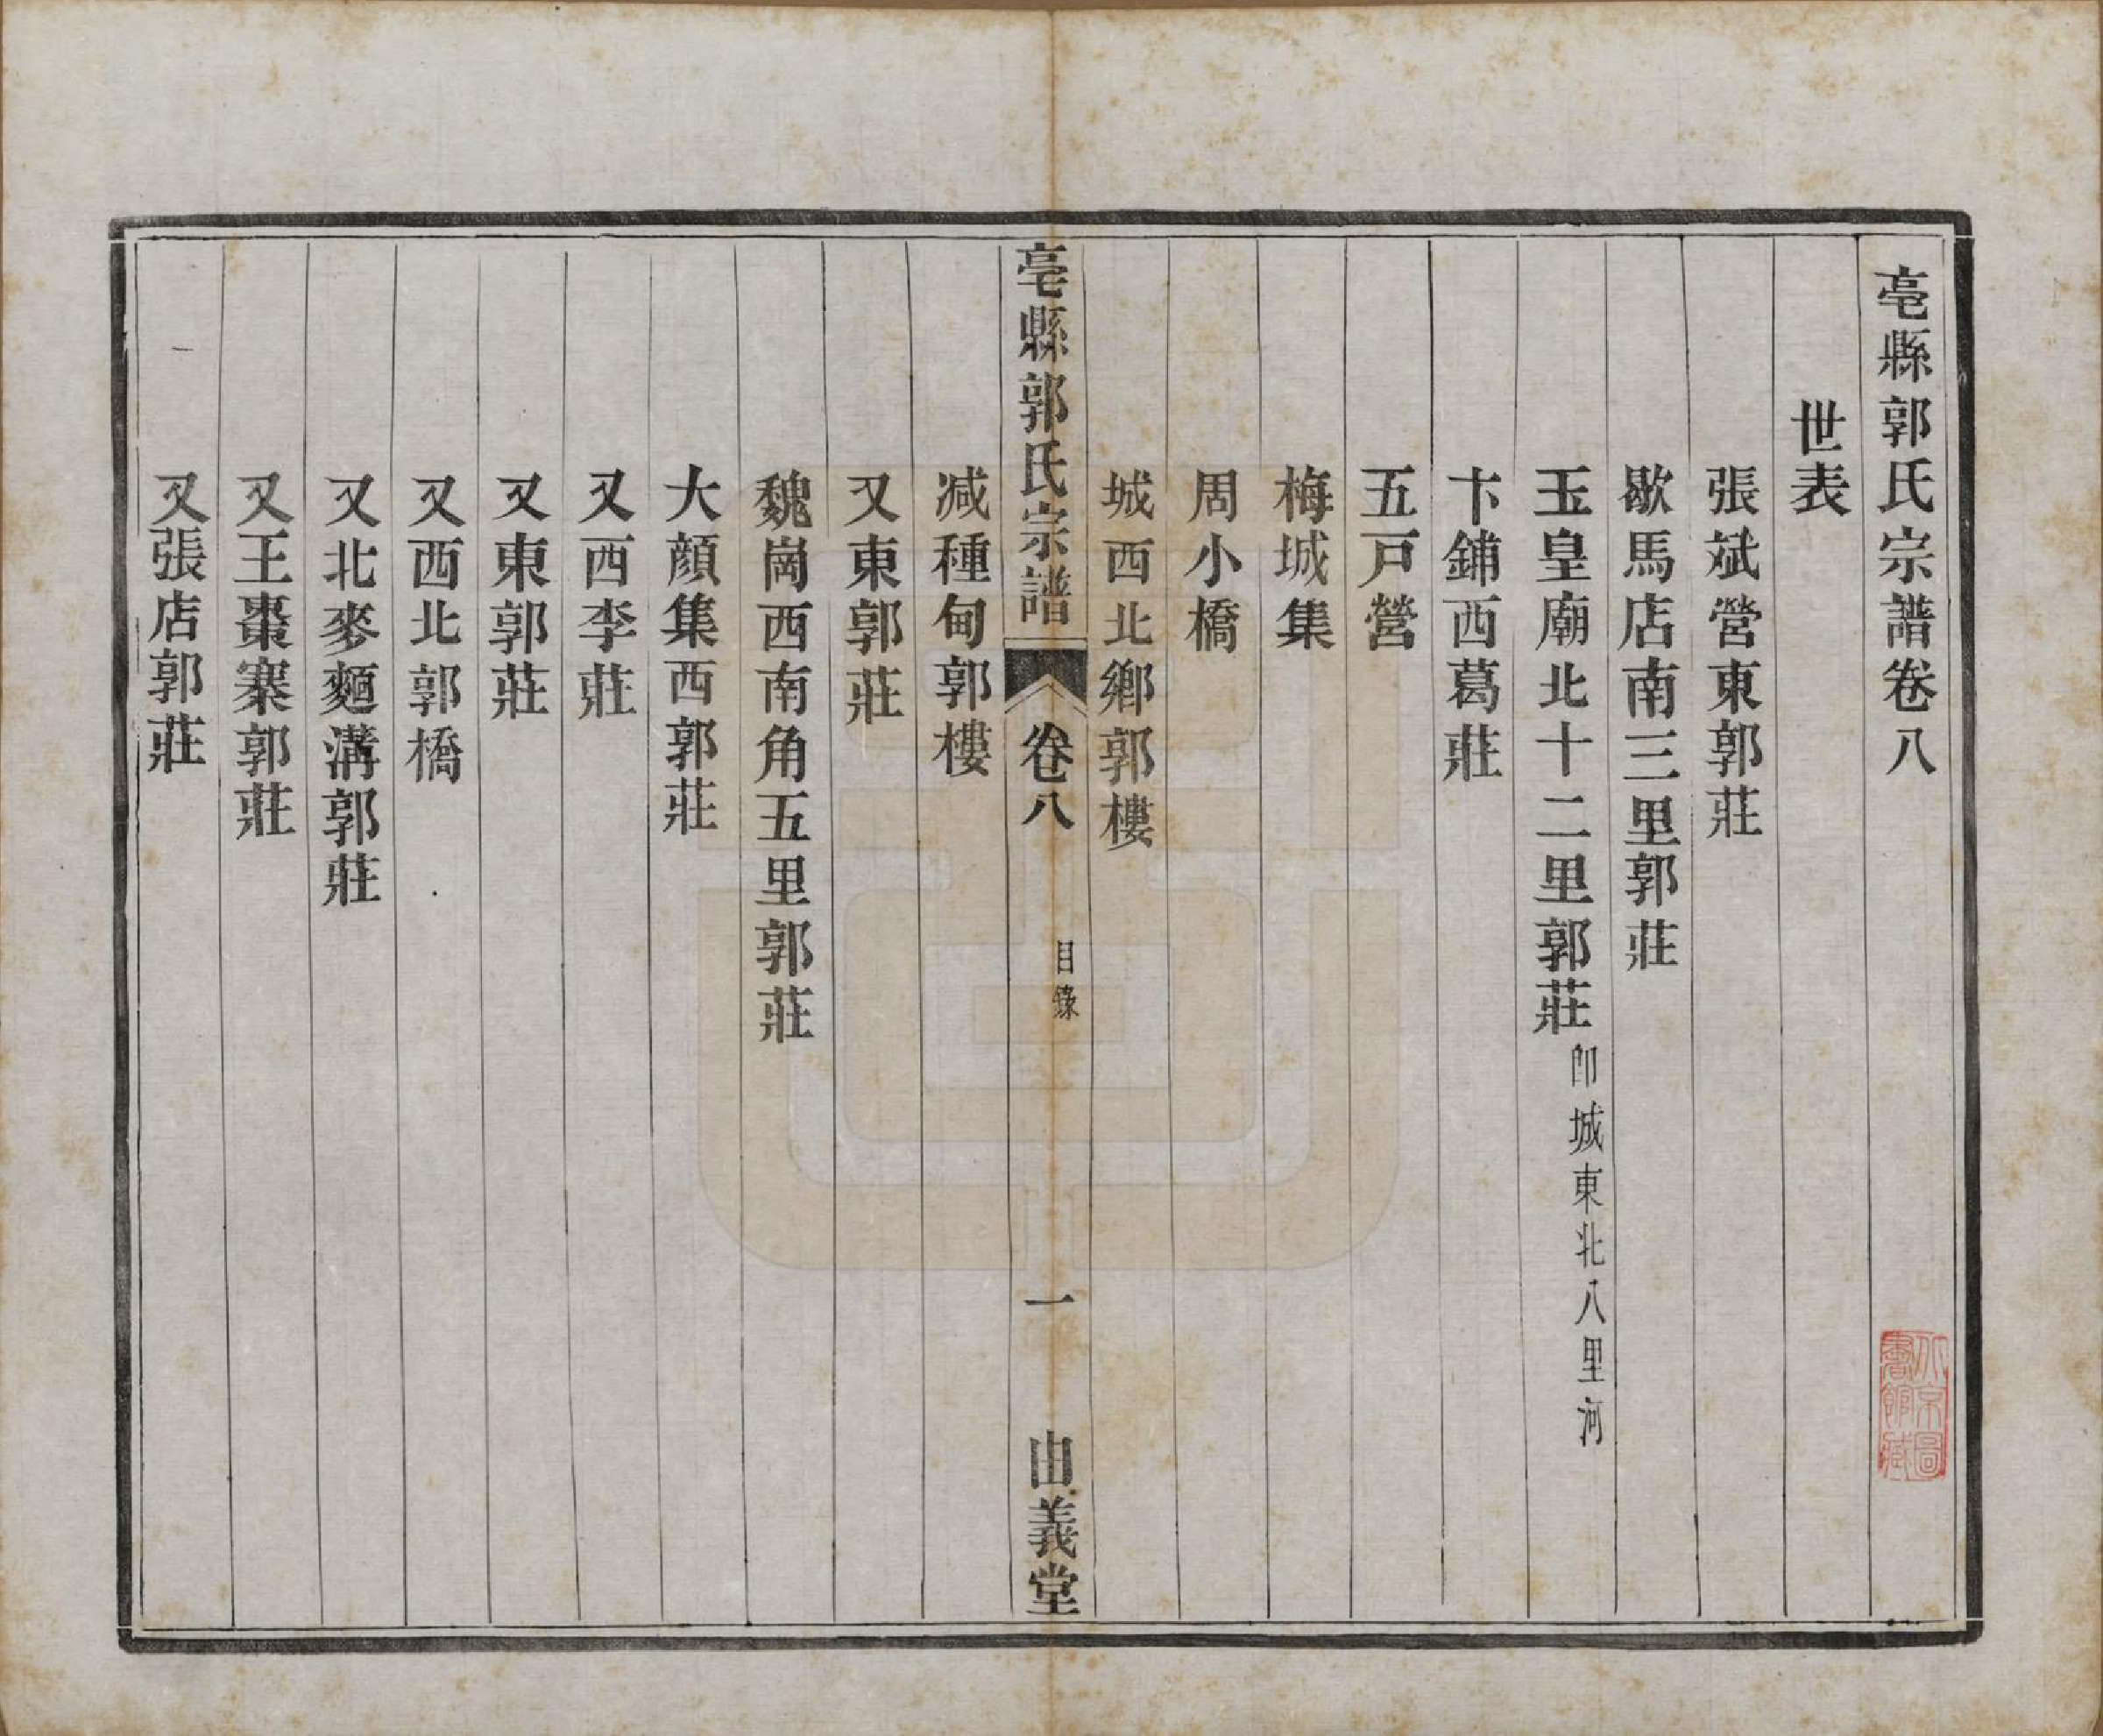 亳縣郭氏宗譜卷八
世表
張斌營東郭莊
歇馬店南三里郭莊
玉皇廟北十二里郭莊 即城東北八里河
卞鋪西葛莊
五戸營
梅城集
周小橋
城西北鄉郭樓
亳縣郭氏宗譜 卷八 目錄 一 由義堂
减種甸郭樓
又東郭莊
魏崗西南角五里郭莊
大顔集西郭莊
又西李莊
又東郭莊
又西北郭橋
又北麥麵溝郭莊
又王棗寨郭莊
又張店郭莊
北京圖書館藏